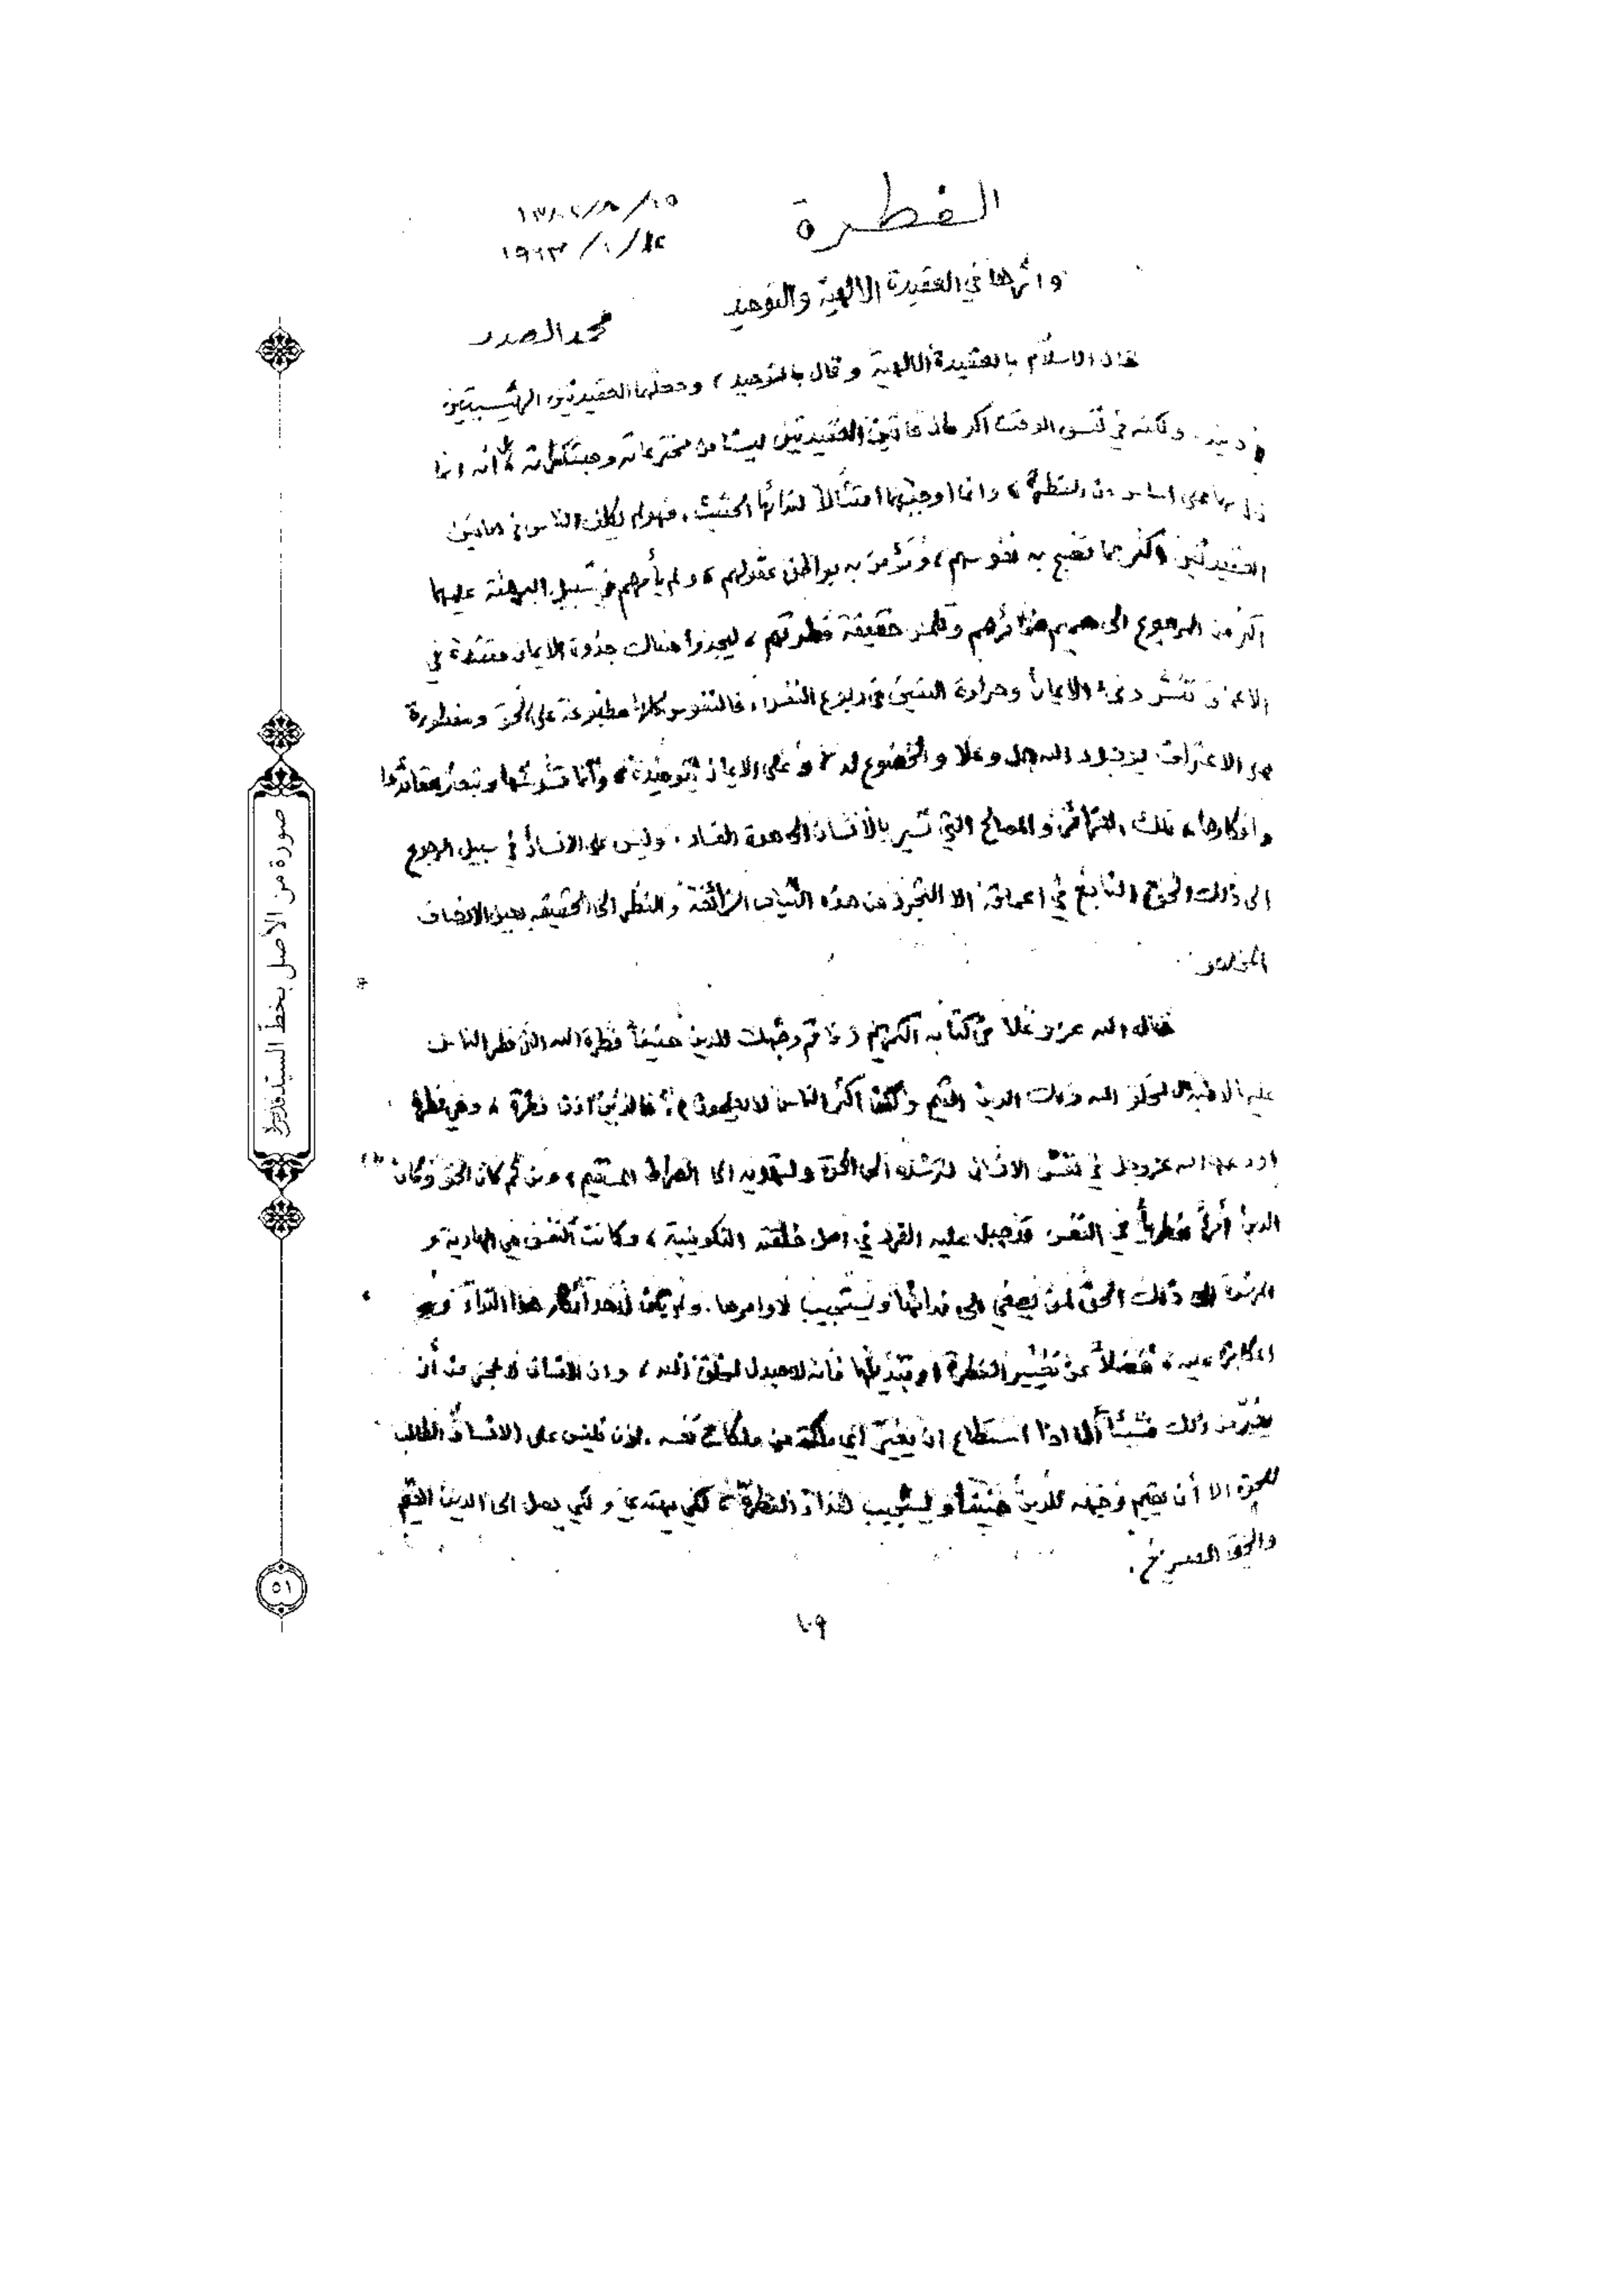 الفطرة
١٣٨٢/٨/١٥
١٩٦٣/١/
واثرها في العقيدة الالهية والتوحيد
محمد الصدر
الاسلام بالعقيدة الالهية وقال بالتوحيد، وجعلهما العقيدتين الرئيسيتين
في دينه. ولكنه في نفس الوقت اكد هاتين العقيدتين ليستا من مخترعاته ومبتكراته، انه انما
على اساس من الفطرة، وانما اوجبهما امتثالاً لندائها الحثيث. فهو لم يكلف الناس في هاتين
العقيدتين اكثر مما تضج به نفوسهم، وتؤمن به بواطن عقولهم، ولم يأمرهم في سبيل البرهنة عليهما
اكثر من الرجوع الى صميم ضمائرهم وحقيقة فطرتهم، ليجدوا هنالك جذوة الايمان متقدة في
الاعماق تنشر دفء الايمان وحرارة اليقين في ربوع النفس. فالنفوس كلها مطبوعة على الحق ومفطورة
على الاعتراف بوجود الله جل وعلا والخضوع له وعلى الايمان بتوحيده، وانما عقائدها
وافكارها، تلك والمصالح التي تسير بالأنسان الى هوة الفساد. وليس على الانسان في سبيل الرجوع
الى ذلك الحق النابع في اعماقه الا التجرد من هذه الثياب الزائفة والنظر الى الحقيقه بعين الانصاف
قال الله عز وعلا في كتابه الكريم (فاقم وجهك للدين حنيفاً فطرة الله التي فطر الناس
عليها لا تبديل لخلق الله ذلك الدين القيم ولكن اكثر الناس لا يعلمون). فالدين اذن فطرة، وهي فطرة
اودعها الله عز وجل في نفس الانسان لترشده الى الحق ولتهديه الى الصراط المستقيم، ومن ثم كان الحق وكان
الدين أمراً فطرياً في النفس قد جبل عليه الفرد في اصل خلقته التكوينية، وكانت النفس هي الهادية و
المرشدة الى ذلك الحق لمن يصغي الى ندائها ويستجيب لاوامرها. ولم يكن لأحد أنكار هذا النداء
المكابرة عليه، فضلاً عن تغيير الفطرة او تبديلها فأنه لا تبديل لخلق الله، وان الانسان لا يمكن أن
يغير من ذلك شيئاً الا اذا استطاع ان يغير اي ملكة من ملكات نفسه. اذن فليس على الانسان الطالب
للحق الا أن يقيم وجهه للدين حنيفاً ويستجيب لنداء الفطرة، لكي يهتدي ولكي يصل الى الدين القيم
والحق الصريح.
١٠٩
صورة من الأصل بخط السيد
٥١